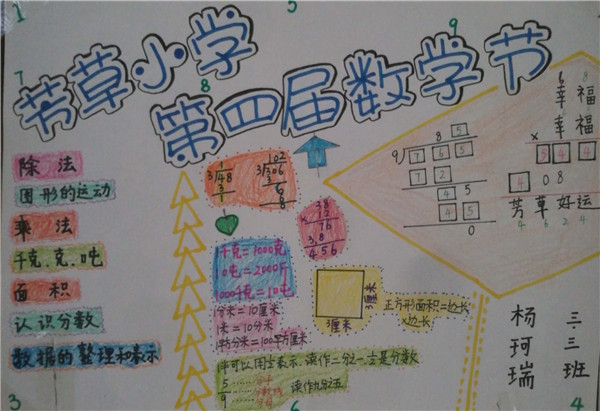 芳草小学
第四届数学节
1
5
9
7
8
除法
图形的运动
乘法
千克、克、吨
面积
认识分数
数据的整理和表示
3
6
4
千克=1000克
1000千克=1吨
1分米=10厘米
1米=10分米
1平方分米=100平方厘米
3厘米
3厘米
正方形面积=边长
×边长
38
12
76
38
456
8 5
9 7 6 5
7 2
4 5
4 5
0
6 8
幸福
幸福
×
5 4 4
4 0 8
芳草好运
4 6 2 4
5
9
读作九分之五
杨珂瑞
三三班